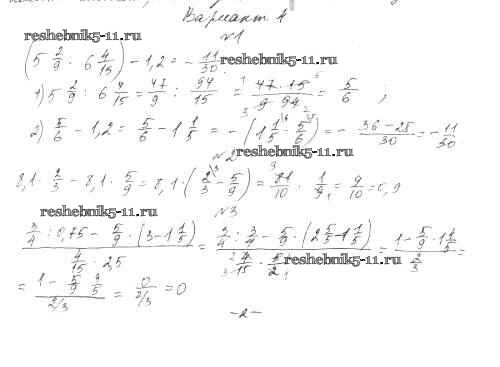 Вариант 1
reshebnik5-11.ru
№1
(5 2/9 : 6 4/15) - 1,2 = - 11/30
reshebnik5-11.ru
1) 5 2/9 : 6 4/15 = 47/9 : 94/15 = 47·15/9·94 = 5/6 ;
2) 5/6 - 1,2 = 5/6 - 1 1/5 = -(1 1/5 - 5/6) = - 36-25/30 = - 11/30
reshebnik5-11.ru
№2
8,1 · 2/3 - 8,1 · 5/9 = 8,1 · (2/3 - 5/9) = 81/10 · 1/9 = 9/10 = 0,9
reshebnik5-11.ru
№3
3/4 : 0,75 - 5/9 · (3 - 1 1/5) / 4/15 · 2,5 = 3/4 : 3/4 - 5/9 · (2 5/5 - 1 1/5) / 4/15 · 5/2 = 1 - 5/9 · 1 4/5 / 2/3 =
reshebnik5-11.ru
= 1 - 5/9 · 9/5 / 2/3 = 0 / 2/3 = 0
-2-